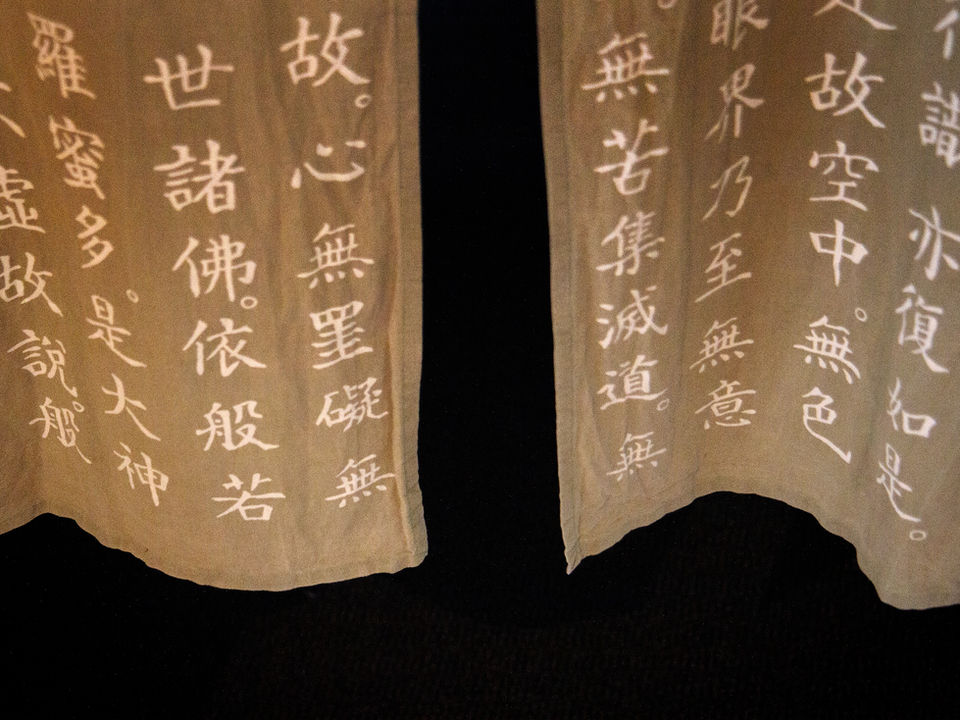 亦復如是。
故空中。無色
眼界乃至無意
無苦集滅道。無
故。心無罣礙無
世諸佛。依般若
羅蜜多。是大神
虛故說般